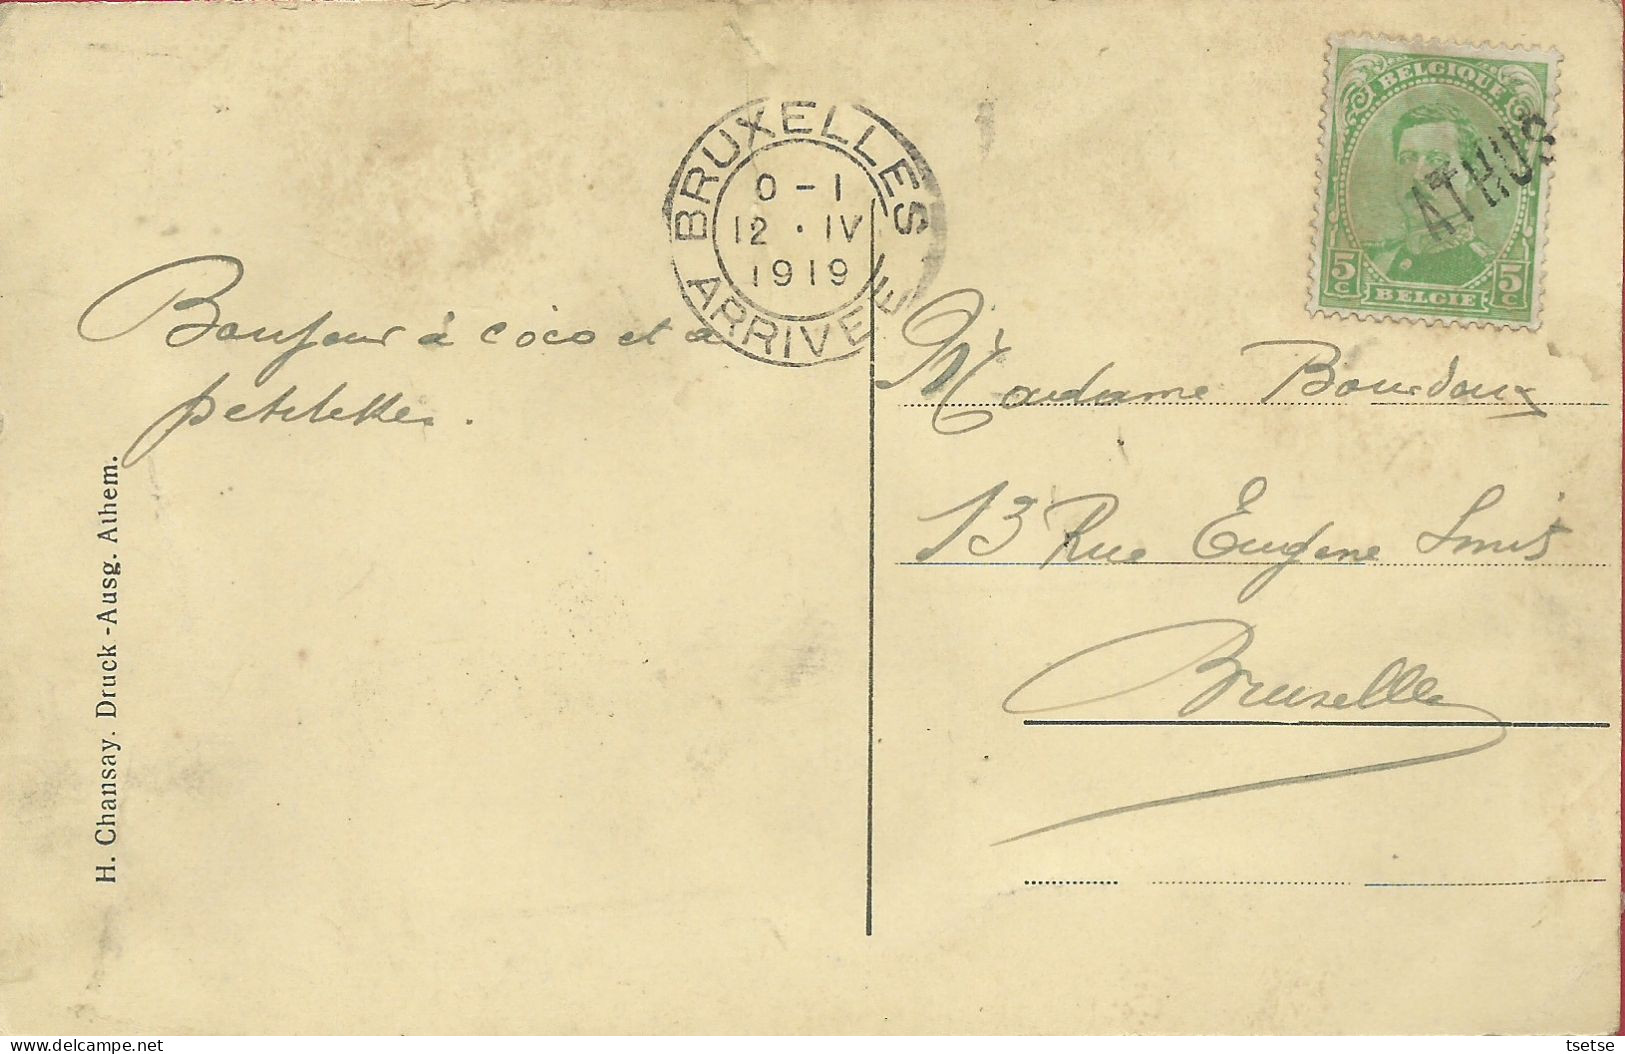 BRUXELLES
0 - 1
12 . IV
1919
ARRIVEE
BELGIQUE
ATHUS
5c 5c
BELGIE
Bonjour à coco et à
Madame
13 Rue Eugène Smits
Bruxelles
H. Chansay. Druck -Ausg. Athem.
delcampe.net
tsetse